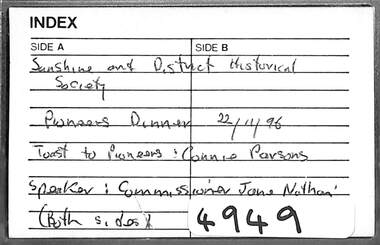 INDEX
SIDE A SIDE B
Sunshine and District Historical
Society
Pioneers Dinner 22/11/96
Toast to Pioneers : Connie Parsons
Speaker : Commissioner Jane Nathan
(Both sides)
4949